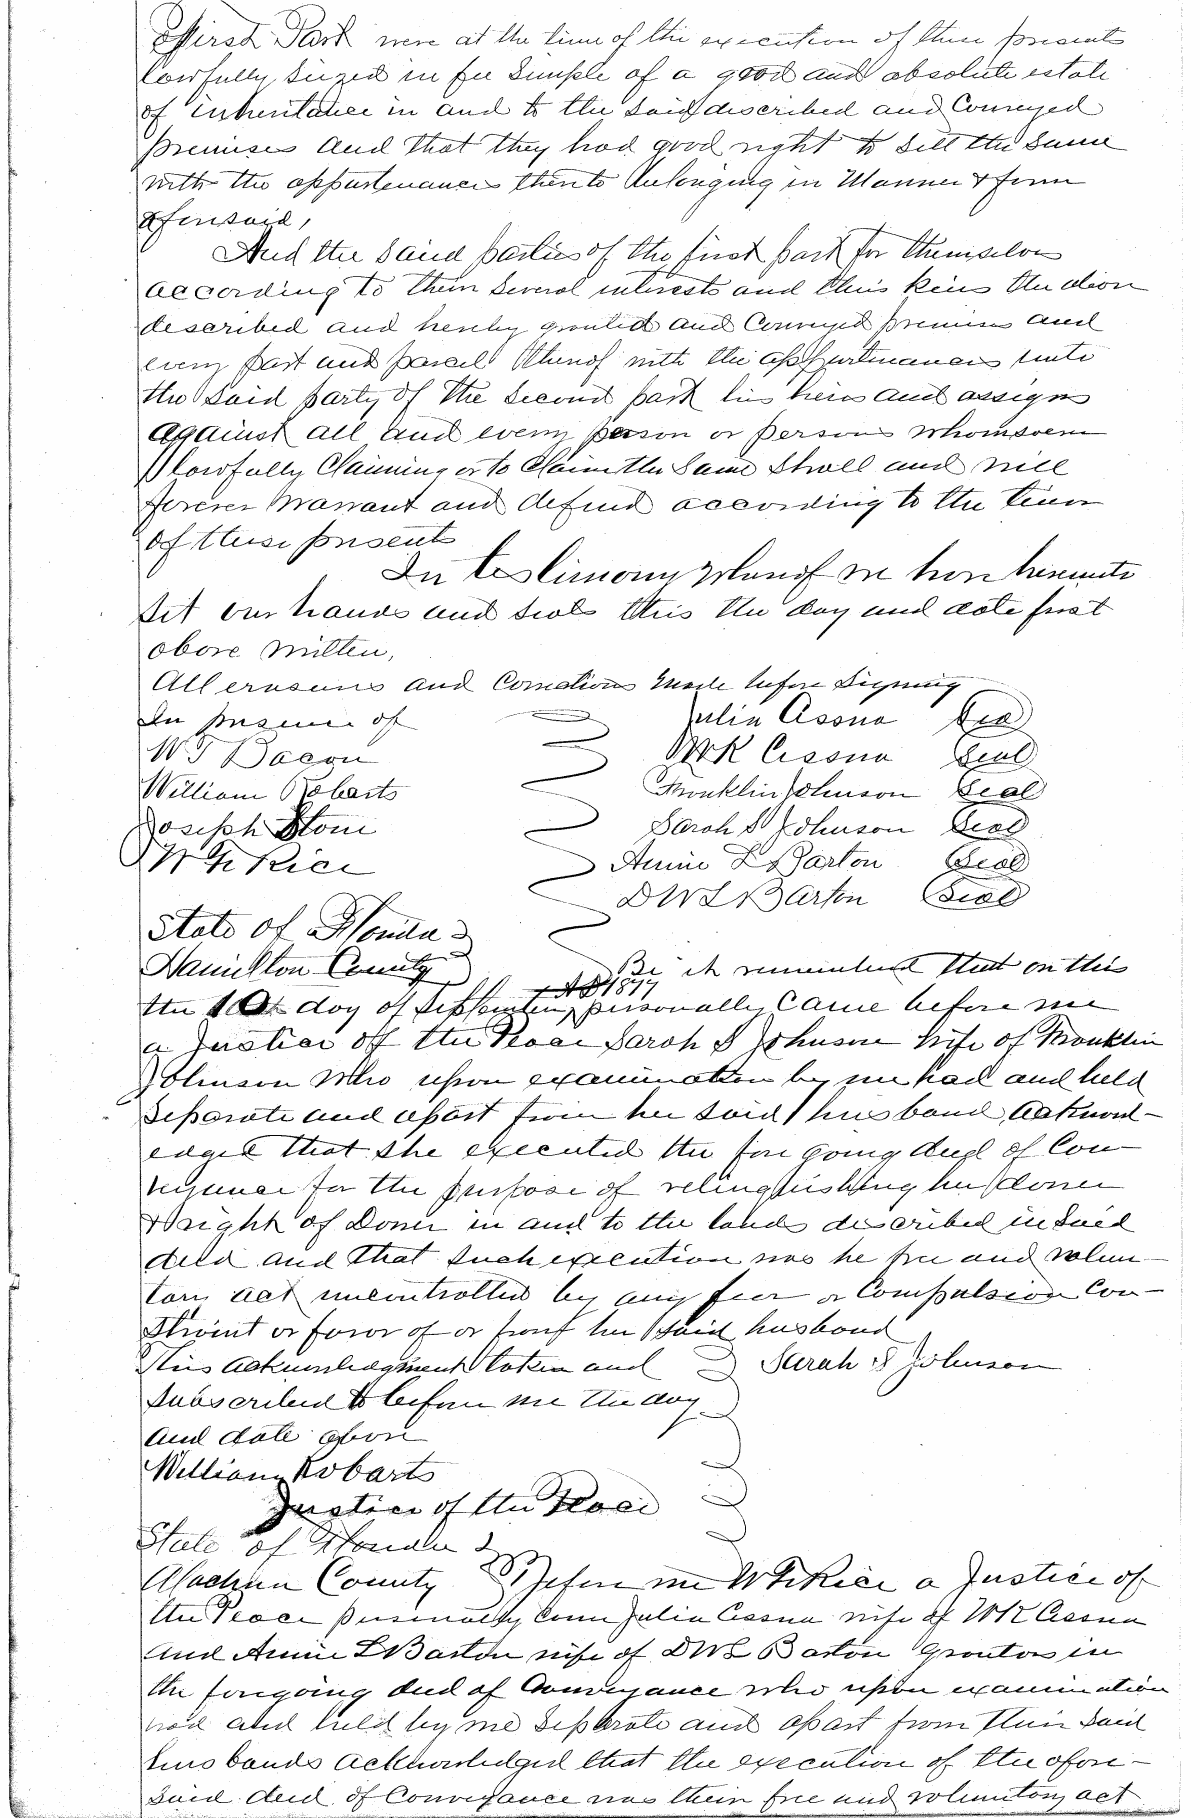 First Part were at the time of the execution of these presents
lawfully seized in fee simple of a good and absolute estate
of inheritance in and to the said described and Conveyed
premises and that they had good right to sell the same
with the appurtenances thereto belonging in Manner & form
aforesaid,
And the said parties of the first part for themselves
according to their several interests and their heirs the above
described and hereby granted and Conveyed premises and
every part and parcel thereof with the appurtenances unto
the said party of the second part his heirs and assigns
against all and every person or persons whomsoever
lawfully Claiming or to Claim the same shall and will
forever warrant and defend according to the tenor
of these presents
In testimony whereof we have hereunto
set our hands and seals this the day and date first
above written,
All erasures and Corrections made before signing
In presence of Julia Cessna Seal
W J Bacon W K Cessna Seal
William Robarts Franklin Johnson Seal
Joseph Stone Sarah S Johnson Seal
W H Rice Annie L Barton Seal
D W L Barton Seal
State of Florida
Hamilton County Be it remembered that on this
the 10th day of September, AD 1877 personally Came before me
a Justice of the Peace Sarah S Johnson wife of Franklin
Johnson who upon examination by me had and held
separate and apart from her said husband, acknowl-
edged that she executed the fore going deed of Con-
veyance for the purpose of relinquishing her dower
& right of Dower in and to the lands described in said
deed and that such execution was he free and volun-
tary act uncontrolled by any fear or Compulsion Con-
straint or favor of or from her said husband
This acknowledgment taken and Sarah S Johnson
subscribed to before me the day
and date above
William Robarts
Justice of the Peace
State of Florida
Alachua County Before me W H Rice a Justice of
the Peace personally Come Julia Cessna wife of W K Cessna
and Annie L Barton wife of D W L Barton Grantors in
the foregoing deed of Conveyance who upon examination
had and held by me separate and apart from their said
husbands acknowledged that the execution of the afore-
said deed of Conveyance was their free and voluntary act